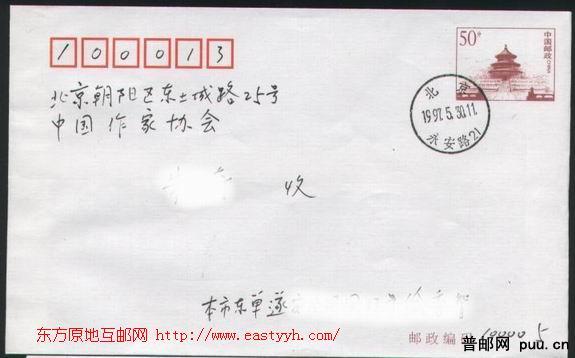 100013
50分
中国邮政
北京
1997.5.30.11
兴安路21
北京朝阳区东土城路25号
中国作家协会
收
本市东单遂
邮政编码 100005
东方原地互邮网 http://www.eastyyh.com/
普邮网 puu.cn